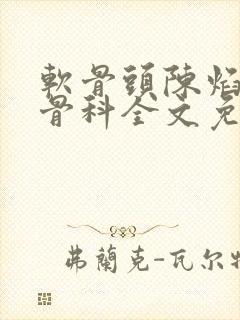 軟骨頭陳焰
骨科全文免
弗蘭克-瓦尔特